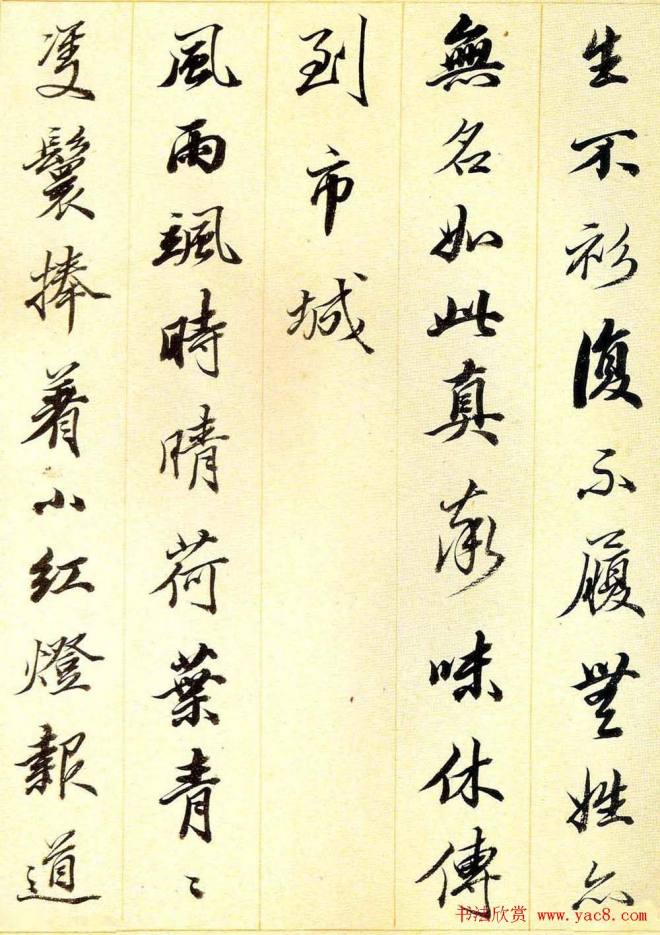 生不衫復不履無姓亦
無名如此真率味休傳
到市城
風雨颯時晴荷葉青〻
雙鬟捧着小紅燈報道
书法欣赏 www.yac8.com